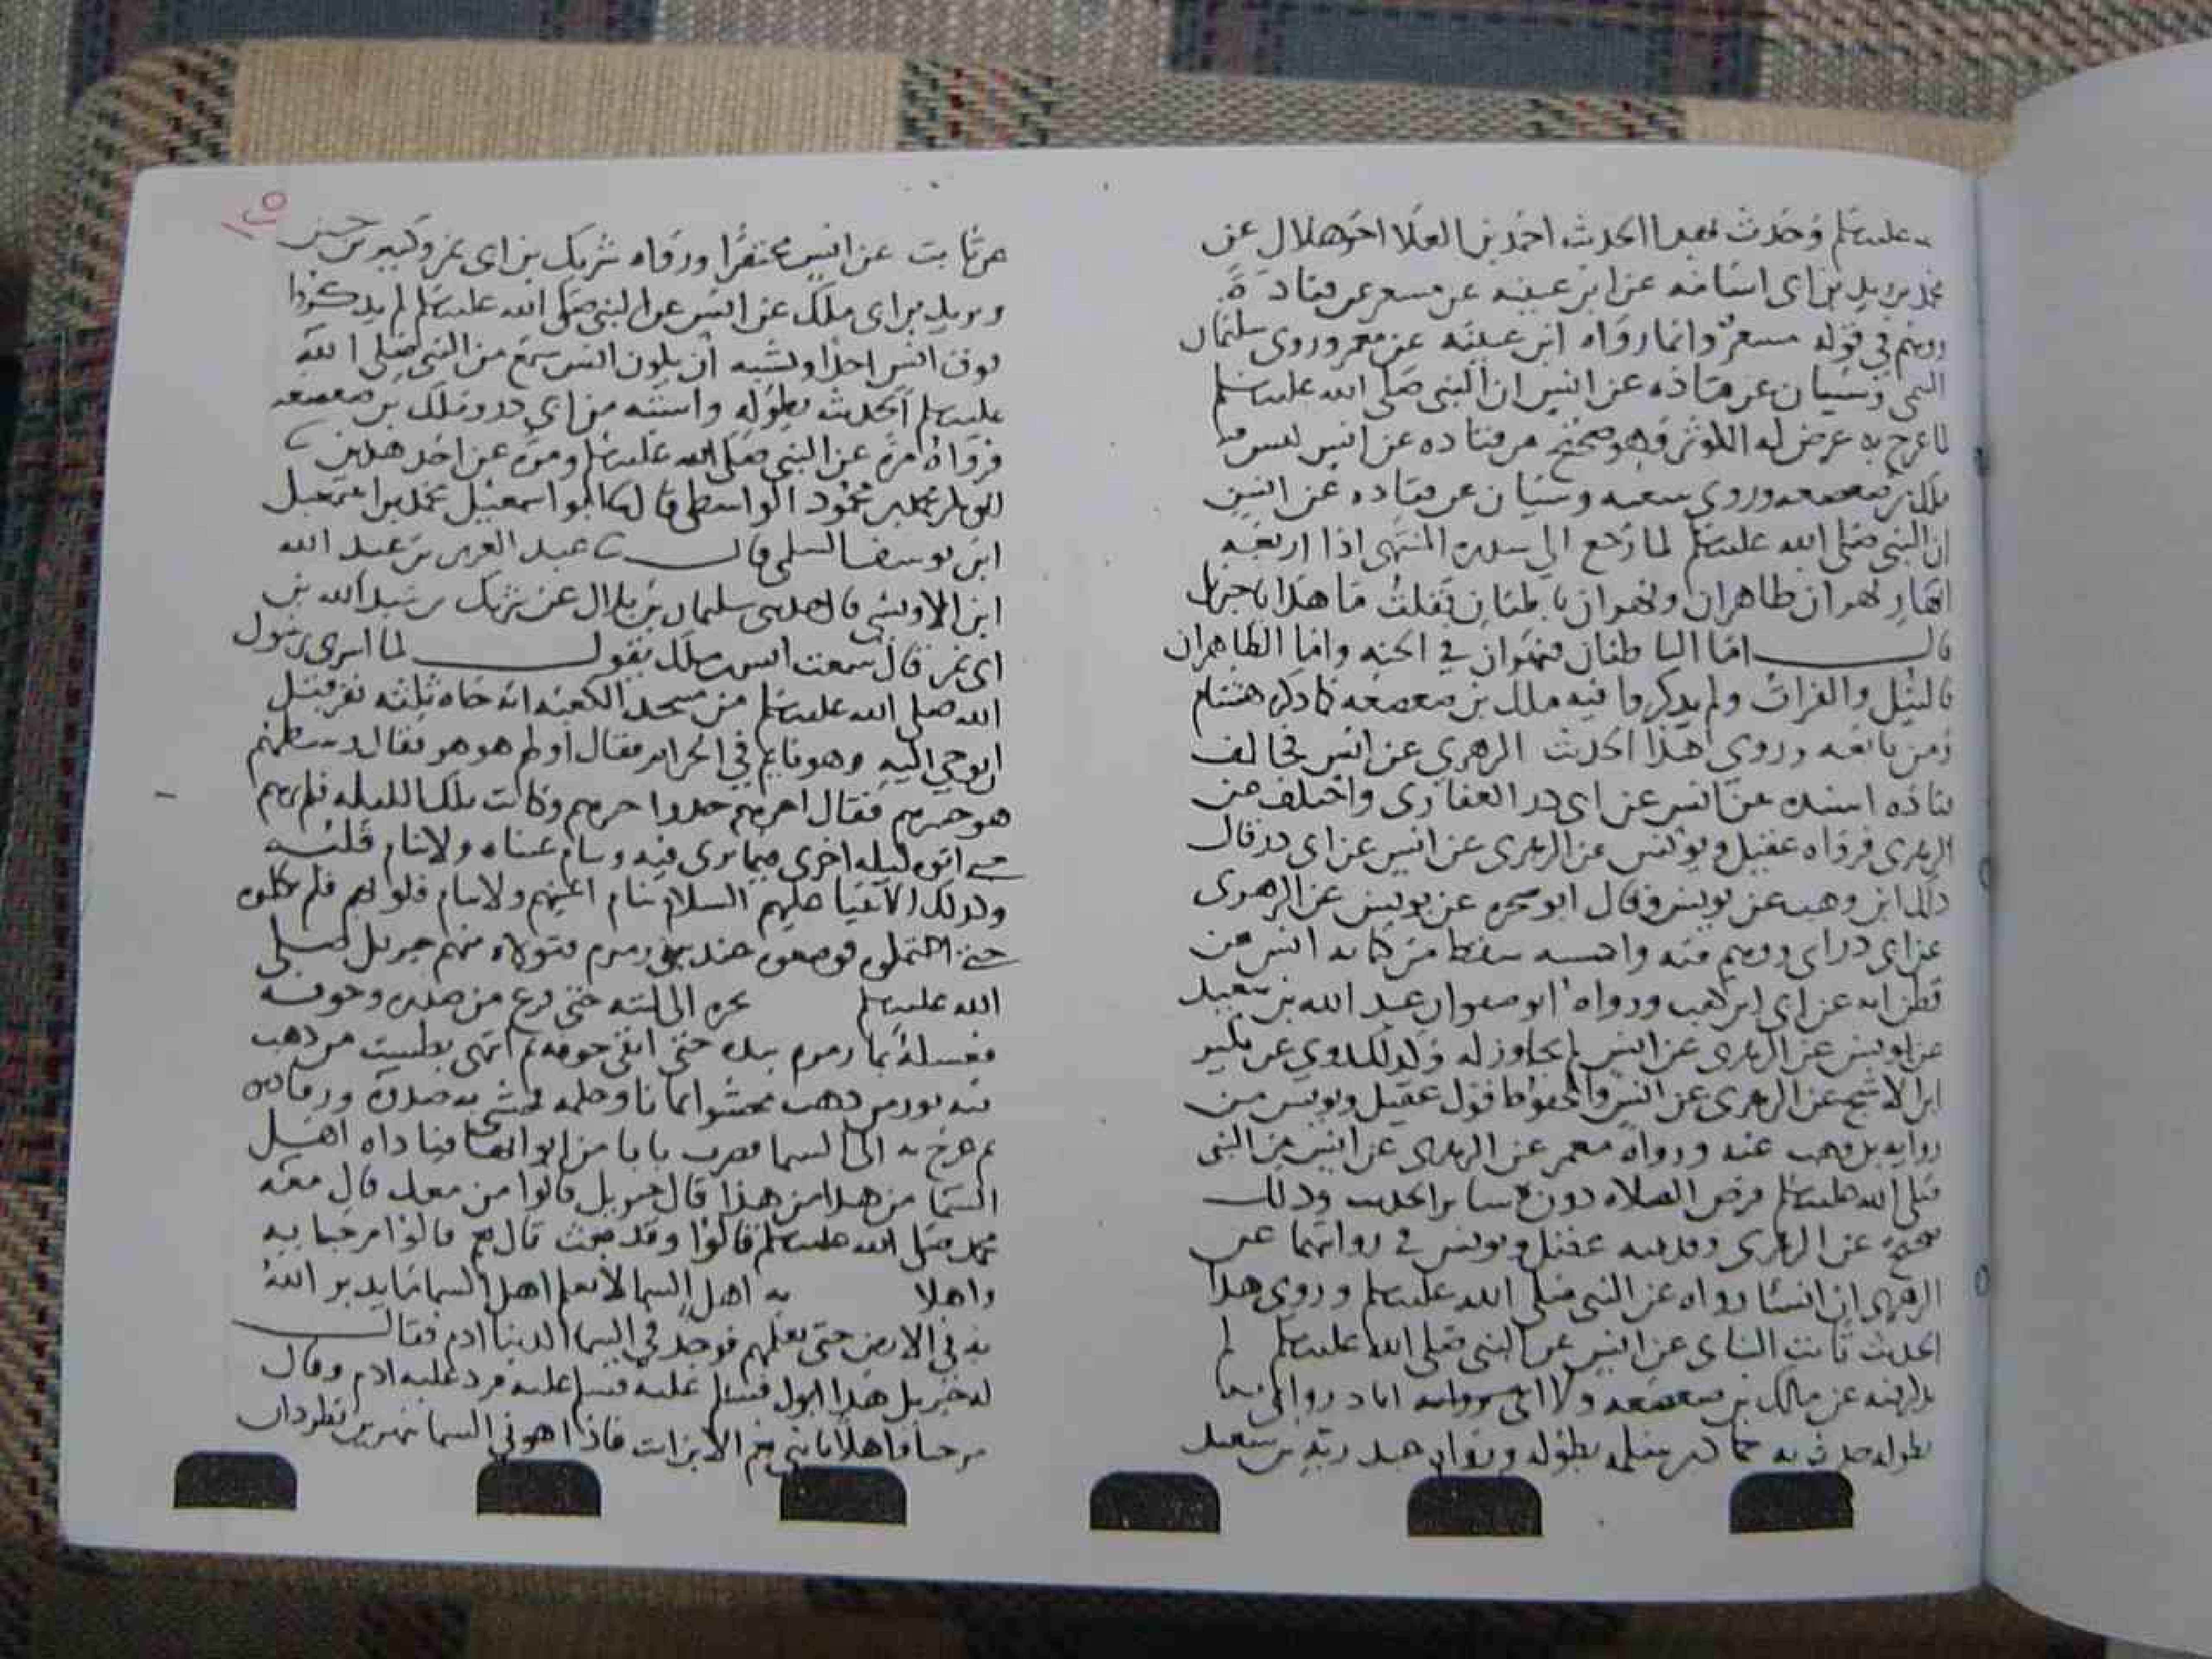 عليه وسلم وحدث بهذا الحديث احمد بن العلا اخو هلال عن
محمد بن يزيد بن ابي اسامة عن ابن عيينه عن مسعر عن قتادة
ووهم في قوله مسعر وانما رواه ابن عيينه عن معمر وروى سليمان
التيمي وشيبان عن قتاده عن انس ان النبي صلى الله عليه وسلم
لما عرج به عرض له الكوثر وهو صحيح من قتاده عن انس ليس فيه
ملك بن صعصعه وروى سعبه وشيبان عن قتاده عن انس
ان النبي صلى الله عليه وسلم لما رفع الي سدره المنتهى اذا اربعه
انهار نهران ظاهران ونهران باطنان فقلت ما هذا يا جبريل
قال اما الباطنان فنهران في الجنه واما الظاهران
فالنيل والفرات ولم يذكر ما فيه ملك بن صعصعه كما ذكره هشام
ومن تابعه وروى هذا الحديث الزهري عن انس فخالف
قتاده اسنده عن انس عن ابي ذر الغفاري واختلف عن
الزهري فرواه عقيل ويونس عن الزهري عن انس عن ابي ذر قال
ذلك ابن وهب عن يونس وقال ابو ضمره عن يونس عن الزهرى
عن ابي ووهم فيه واحسبه سقط من كتابه انس
فظن انه عن ابي ورواه ابو صفوان عبد الله بن سعيد
عن يونس عن الزهري عن انس لم يجاوز له وكذلك روي عن بكير
ابن الاشج عن الزهري عن انس والمحفوظ قول عقيل ويونس من
روايه بن وهب عنه ورواه معمر عن الزهري عن انس عن النبي
صلى الله عليه وسلم فرض الصلاه دون ساير الحديث وذلك
صحيح عن الزهرى عقيل ويونس في روايتهما عن
الزهري ان انسا رواه عن النبي صلى الله عليه وسلم وروى هذا
الحديث ثابت البناني عن انس عن النبي صلى الله عليه وسلم لم
يذكر فيه عن مالك بن صعصعه ولا ابي
بطوله حدث به حماد بن سلمه بطوله ورواه عبد ربه بن سعيد
عن ثابت عن انس مختصرا ورواه شريك بن ابي نمر وكثير بن خنيس
ويزيد بن ابي ملك عن انس عن النبي صلى الله عليه وسلم لم يذكروا
فوق انس احدا ويشبه ان يكون انس سمع من النبي صلى الله
عليه وسلم الحديث بطوله واستثبته من ابي ذر وملك بن صعصعه
فرواه مرة عن النبي صلى الله عليه وسلم ومرة عن احد هذين
محمد بن محمود الواسطي قال ابو اسمعيل محمد بن اسمعيل
ابن يوسف السلمي قال عبد العزيز بن عبد الله
ابن الاويسي قال حدثني سليمان بن بلال عن شريك بن عبد الله بن
ابي نمر قال سمعت انس بن ملك يقول لما اسري برسول
الله صلى الله عليه وسلم من مسجد الكعبه انه جاه ثلثه نفر قبل
ان يوحي اليه وهو نايم في الحرام فقال اولهم هو هو فقال اوسطهم
هو خيرهم فقال اخرهم خذوا خيرهم وكانت تلك الليله فلم يرهم
حتى اتوه ليله اخرى فيما يرى قلبه وتنام عيناه ولا ينام قلبه
وكذلك الانبيا عليهم السلام تنام اعينهم ولا تنام قلوبهم فلم يكلموه
حتى احتملوه فوضعوه عند بير زمزم فتولاه منهم جبريل صلى
الله عليه وسلم نحره الى لبته حتى فرغ من صدره وجوفه
فغسله بما زمزم بيده حتى انقى جوفه ثم اتى بطست من ذهب
فيه تور من ذهب محشوا ايمانا وحكمه فحشي به صدره
ثم عرج به الى السما فضرب بابا من ابوابها فناداه اهل
السما من هذا من هذا قال جبريل قالوا من معك قال معي
محمد صلى الله عليه وسلم قالوا وقد بعث قال نعم قالوا مرحبا به
واهلا به اهل السما لا يعلم اهل السما ما يريد الله
به في الارض حتى يعلمهم فوجد في السما الدنيا ادم فقال
له جبريل هذا ابوك فسلم عليه فسلم عليه فرد عليه ادم وقال
مرحبا واهلا يا بني نعم الابن انت فاذا هو في السما بنهرين يطردان